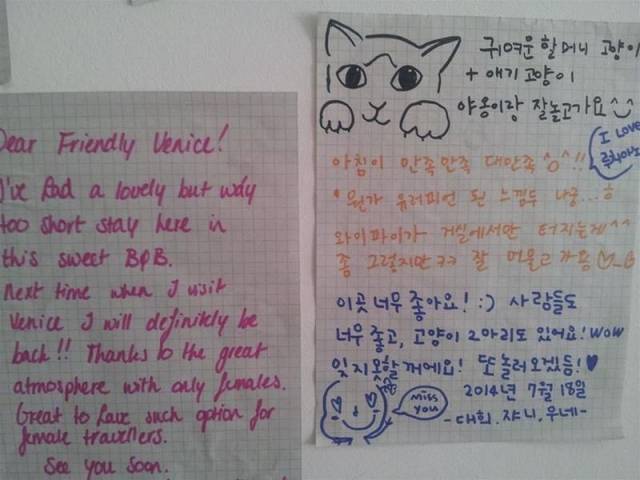 Dear Friendly Venice!
I've had a lovely but way
too short stay here in
this sweet B&B.
Next time when I visit
Venice I will definitely be
back!! Thanks to the great
atmosphere with only females.
Great to have such option for
female travellers.
See you soon.
귀여운 할머니 고양이
+ 애기 고양이
야옹이랑 잘놀고가요^_^
I LOVE
루치아노
아침이 만족만족 대만족^o^!!
*뭔가 유러피언 된 느낌두 나궁...ㅎ
와이파이가 거실에서만 터지는게^^
좀 그렇지만ㅋㅋ 잘 머물고 가용
이곳 너무 좋아요! :) 사람들도
너무 좋고, 고양이 2마리도 있어요! WOW
잊지 못할 꺼에요! 또 놀러오겠듬!♥
2014년 7월 18일
MISS
YOU
-대희.쟈니.우네-